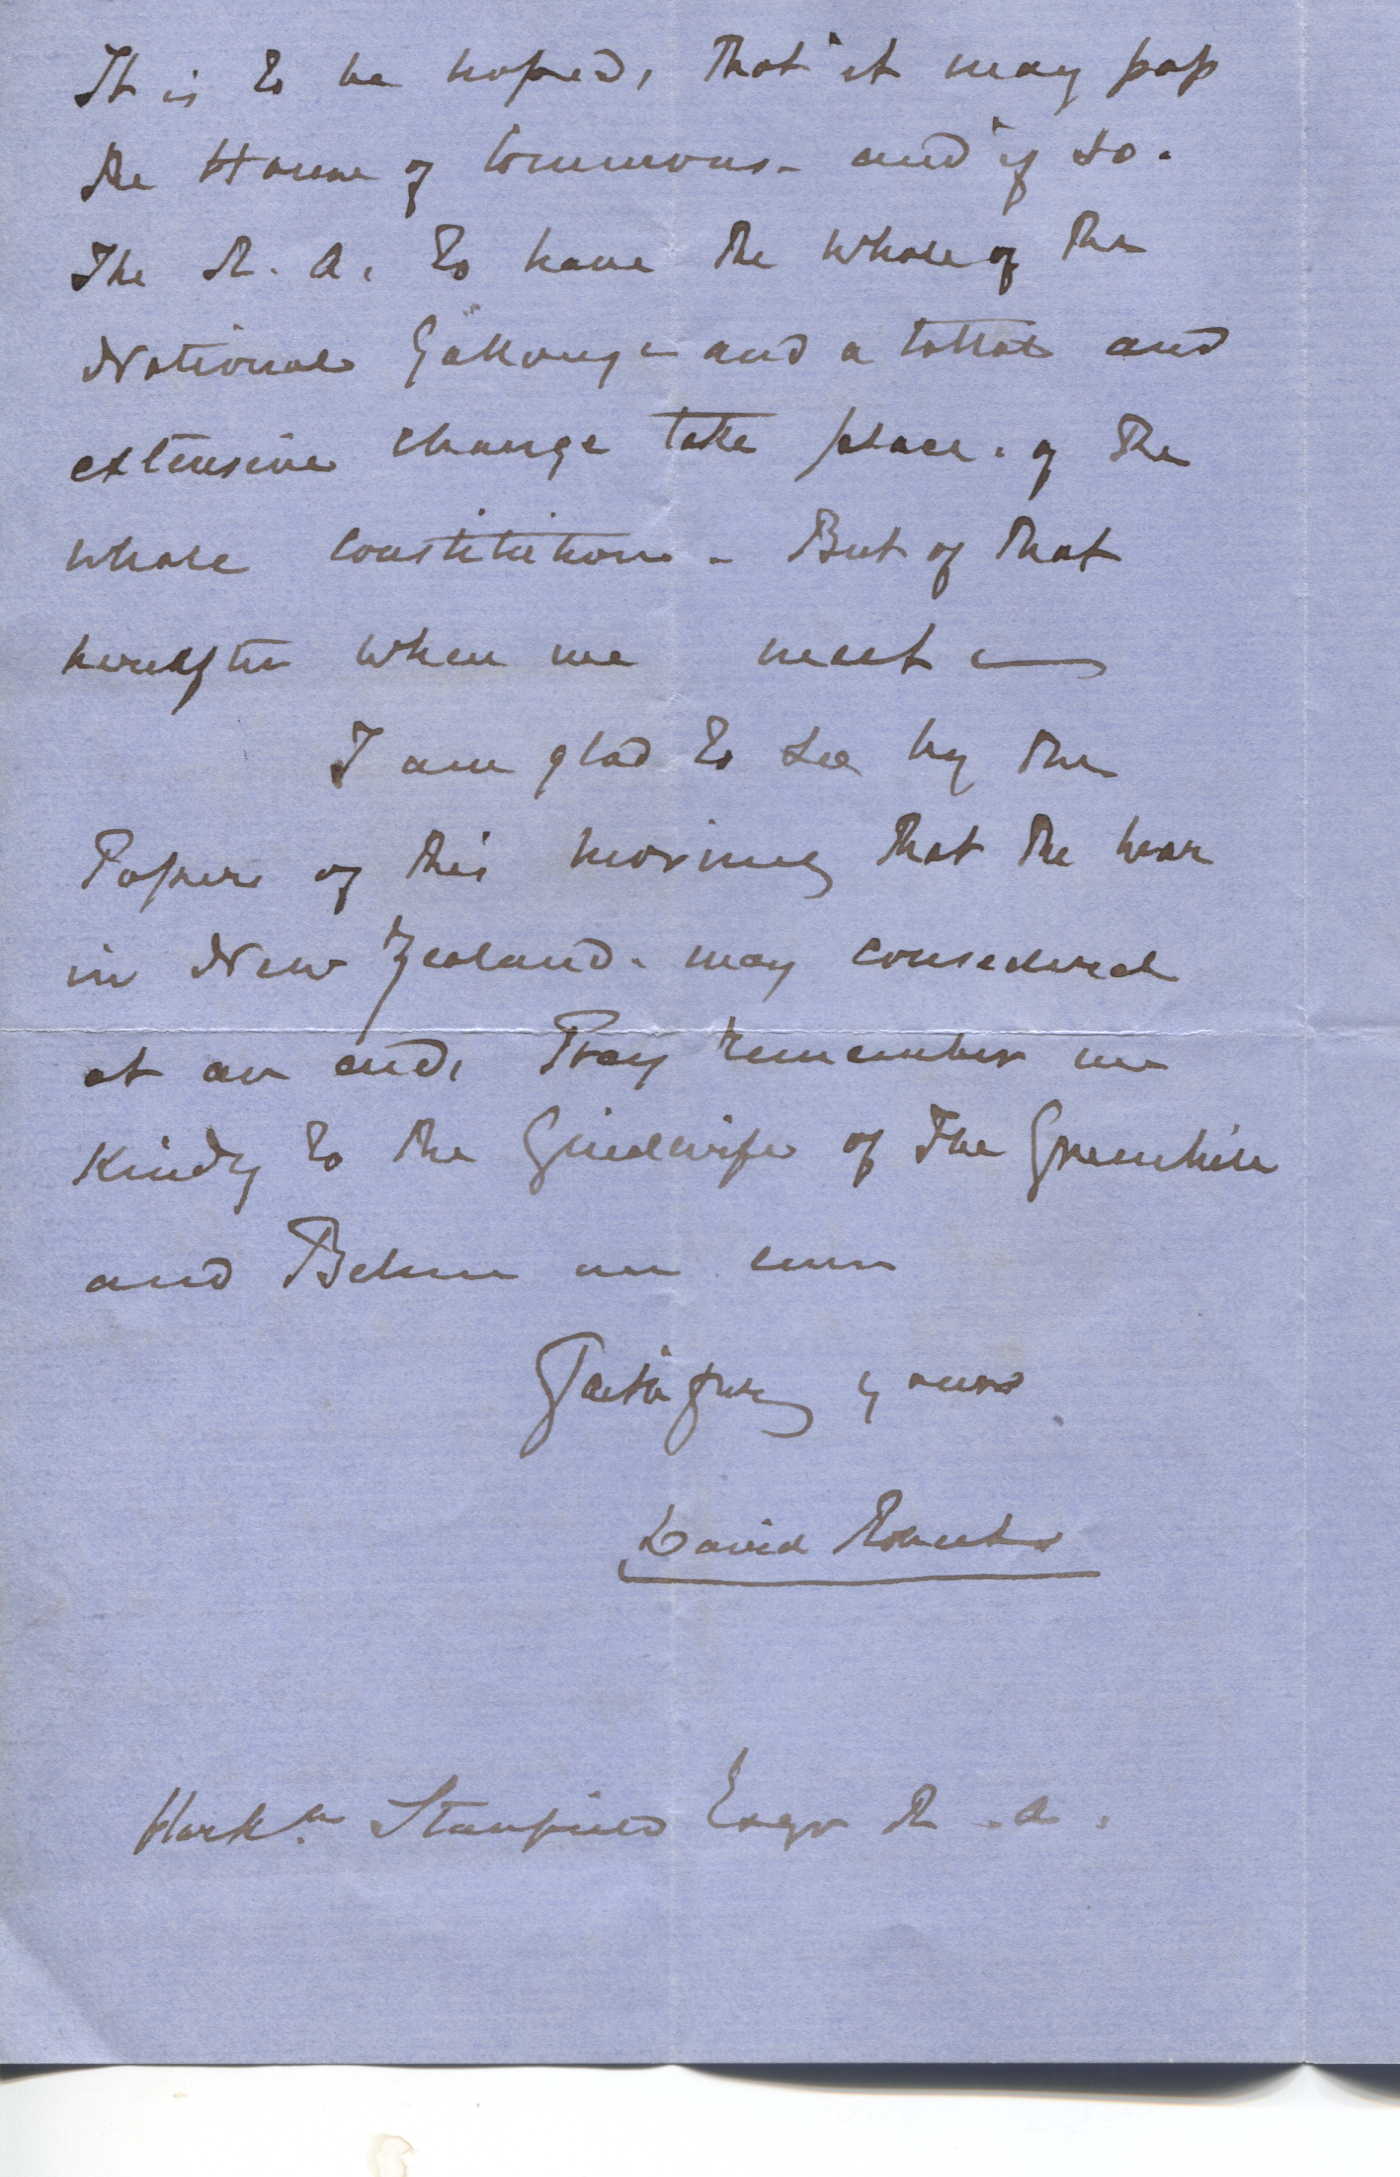 It is to be hoped, that it may pass
the House of Commons - and if so.
The R. A. to have the whole of the
National Gallery - and a total and
extensive change take place. of the
whole constitution - But of that
hereafter when we meet —
I am glad to see by the
Papers of this morning that the war
in New Zealand. may considered
at an end, Pray remember me
Kindly to the Guidwife of The Greenhill
and Believe me ever
Faithfully yours
David Roberts
Clarkn. Stanfield Esqr R. A.